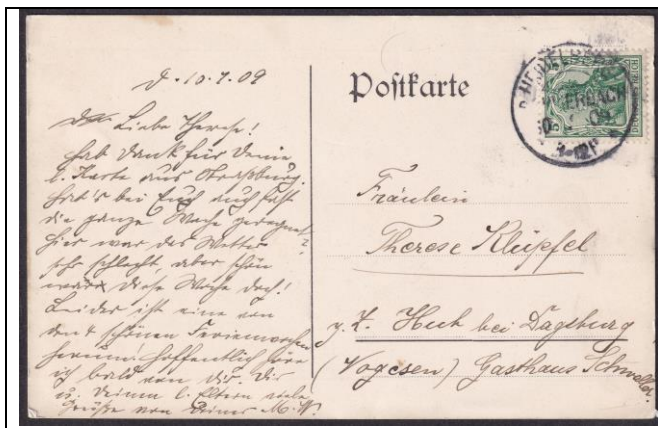 d. 10.7.09
Liebe Therese!
hab Dank für Deine
l. Karte aus Strassburg.
Hat's bei Euch auch fast
die ganze Woche geregnet?
hier war das Wetter
sehr schlecht, aber schön
war diese Woche doch!
Leider ist eine von
den 4 schönen Ferienwochen
herum. Hoffentlich höre
ich bald von Dir. Dir
u. Deinen l. Eltern viele
Grüße von Deiner M. W.
Postkarte
Fräulein
Therese Klüpfel
z. Z. Hub bei Dagsburg
(Vogesen) Gasthaus